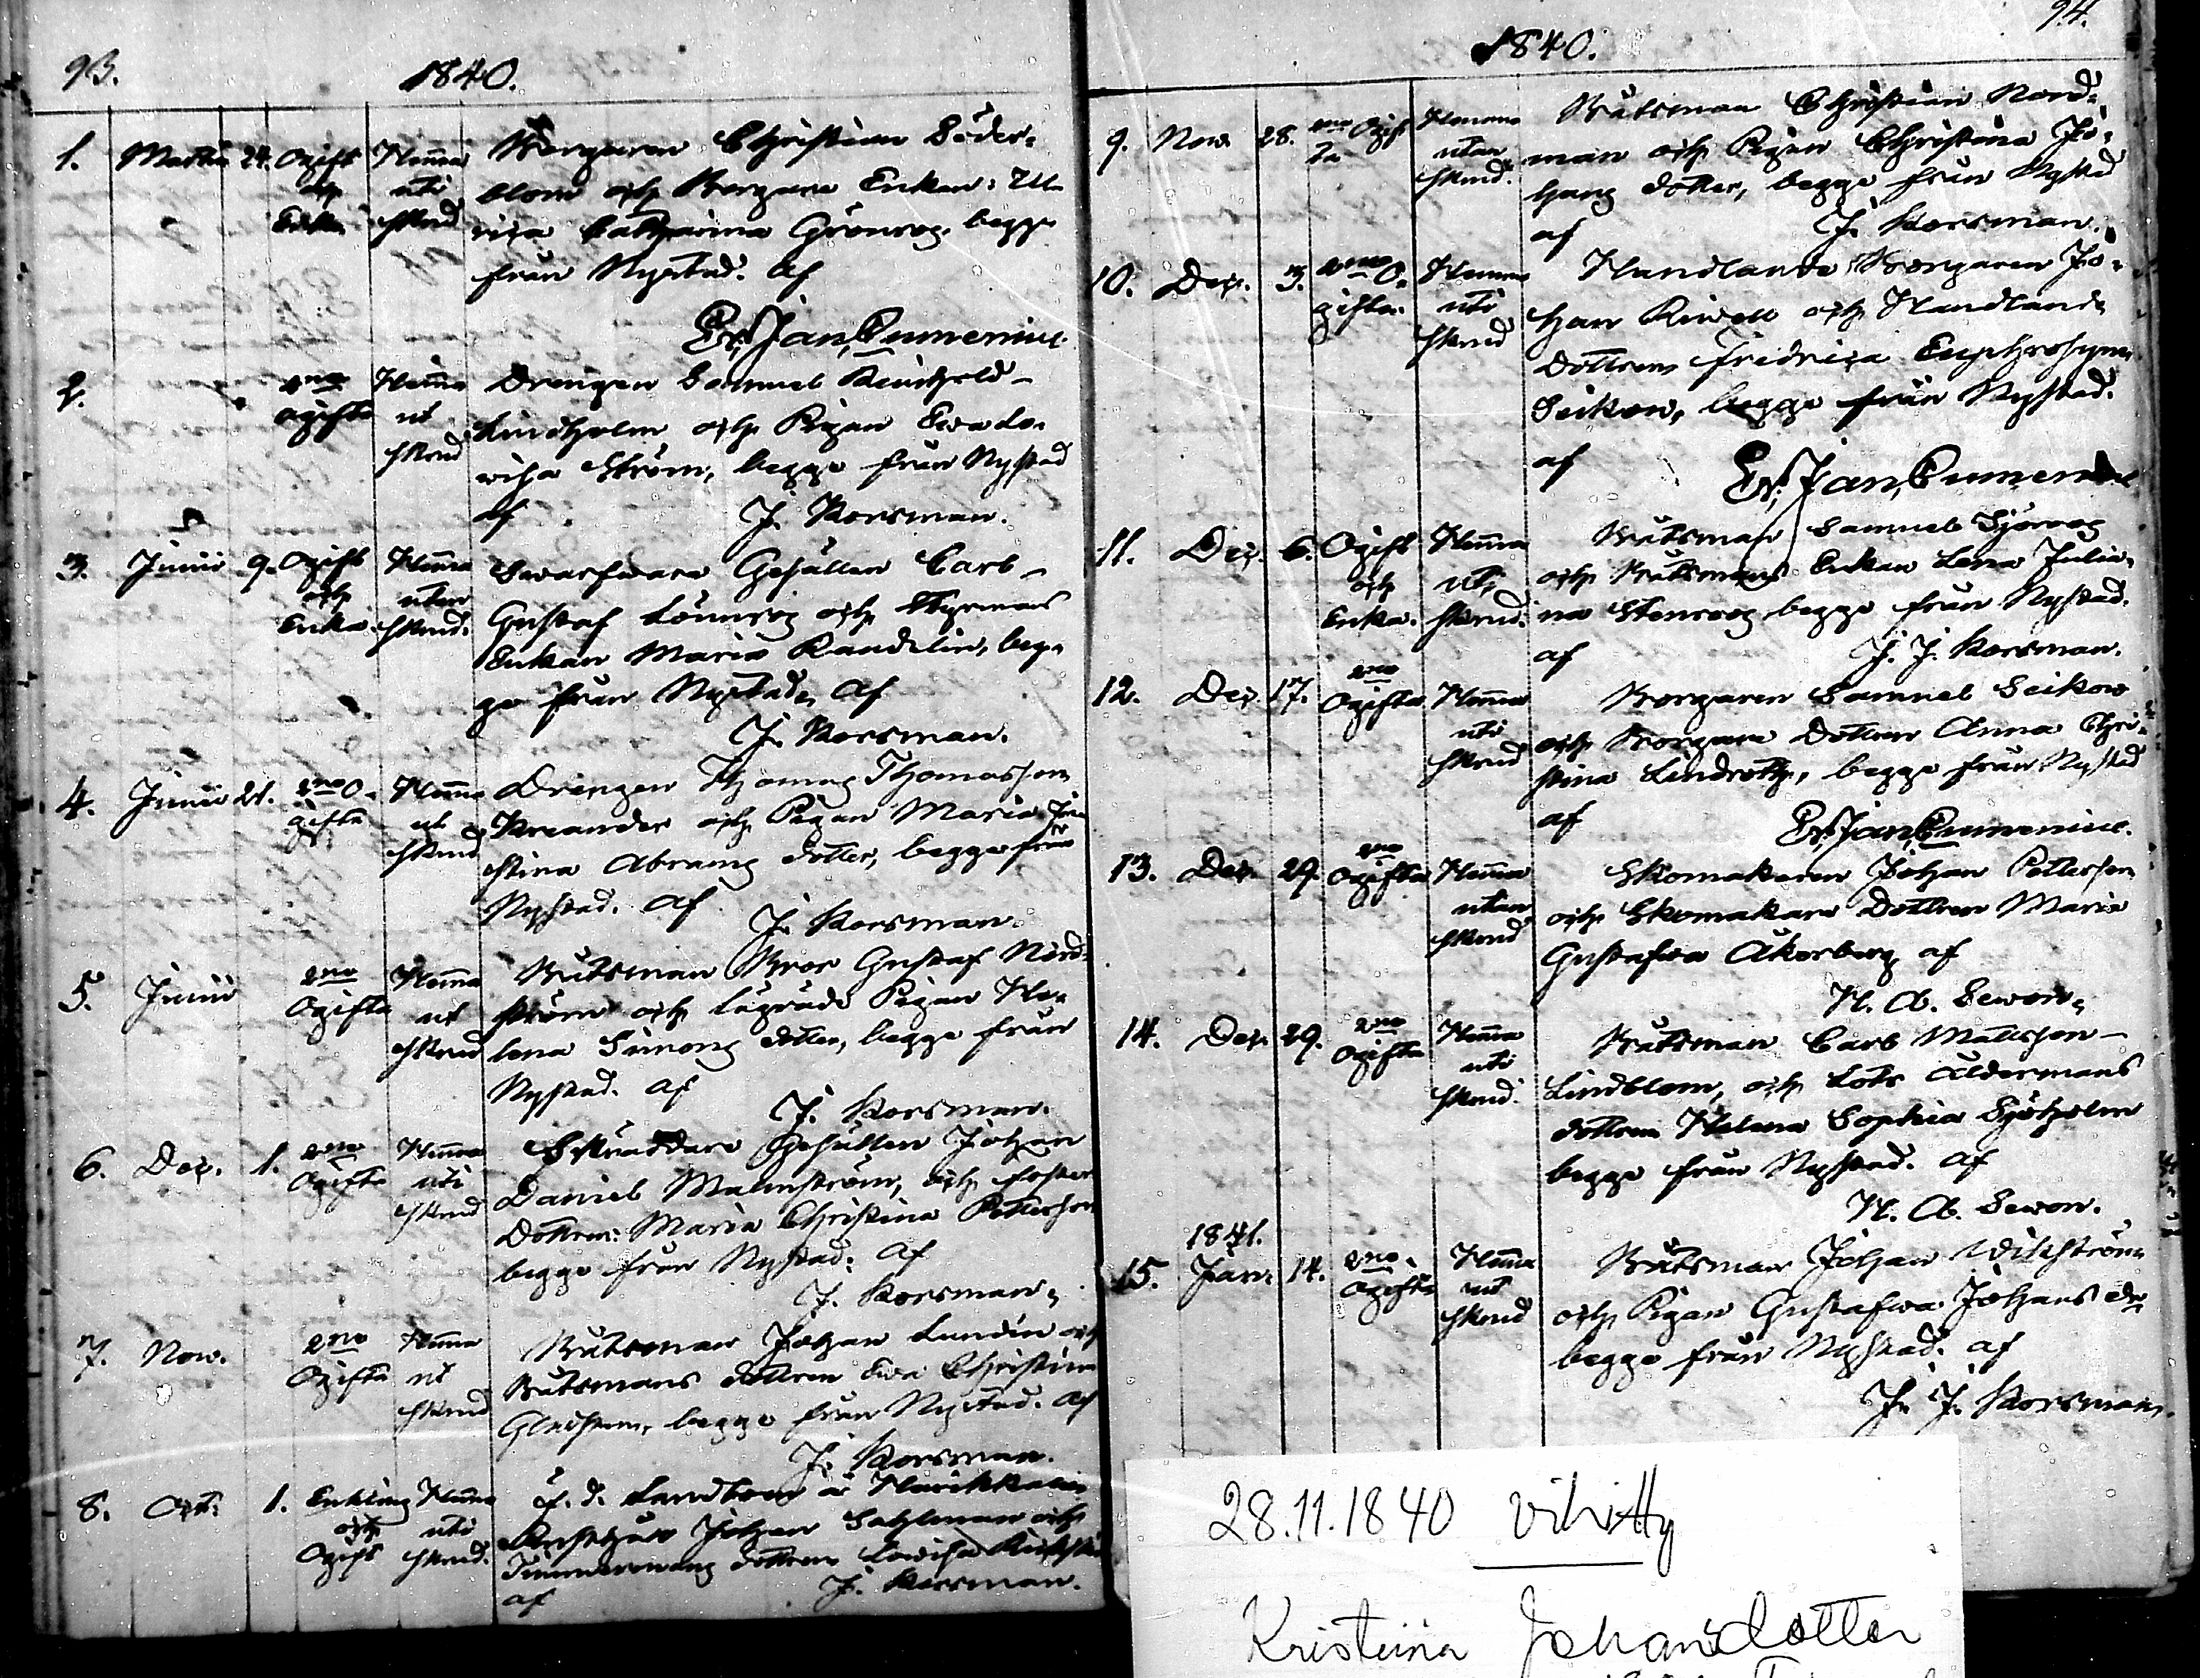 93.
1840.
1. Martii 24. Ogift och Enka Hemma uti skrud Borgaren Christian Söder-
blom och Borgare Enkan: Ul-
rica Catharina Grönroos, begge
från Nystad. af
Er. Jan. Cumenius.
2. 2ne ogifta Hemma ut skrud Drengen Samuel
Lindholm och Pigan Eva Lo-
visa Ström, begge från Nystad
af J. Korsman.
3. Junii 9. Ogift och Enka Hemma utan skrud. Swarfware Gesällen Carl
Gustaf Lönnroos och Styrmans
Enkan Maria Randelin, beg-
ge från Nystad, af
J. Korsman.
4. Junii 21. 2ne O-gifta Hemma ut skrud Drengen Thomas Thomasson
och Pigan Maria
stina Abrams dotter, begge från
Nystad. af J. Korsman.
5. Junii 2ne Ogifta Hemma ut skrud Båtsman Gustaf Nord-
ström och Pigan He-
lena Simons dotter, begge från
Nystad. af
J. Korsman.
6. Dec. 1. 2ne Ogifta Hemma uti skrud Skräddare Gesällen Johan
Daniel Malmström, och foster
Dottren: Maria Christina Pettersson
begge från Nystad: af
J. Korsman.
7. Nov. 2ne Ogifta Hemma ut skrud Båtsman Johan Lundin och
Båtsmans dottren Eva Christina
begge från Nystad. af
J. Korsman.
8. Oct: 1. Enkling och Ogift Hemma uti skrud. f. d. Landbon å
Johan Sahlman och
Timmermans dottren Lovisa
af J. Korsman.
94.
1840.
9. Nov. 28. 2ne Ogifta Hemma utan skrud. Båtsman Christian Nord-
man och Pigan Christina Jo-
hans dotter, begge från Nystad
af J. Korsman.
10. Dec. 3. 2ne O-gifta. Hemma uti skrud Handlande Borgaren Jo-
han Rivell och Handlande
Dottren Fredrica Euphrosyne
Seikow, begge från Nystad.
af Er. Jan. Cumenius
11. Dec. 6. Ogift och Enka. Hemma uti skrud. Båtsman Samuel Sjöroos
och Båtsmans Enkan Lena Julia-
na Stenroos begge från Nystad.
af J. J. Korsman.
12. Dec. 17. 2ne Ogifta Hemma uti skrud Borgaren Samuel Seikow
och Borgare Dottren Anna Chri-
stina Lindroth, begge från Nystad
af Er. Jan. Cumenius.
13. Dec. 29. 2ne ogifta Hemma utan skrud Skomakaren Johan Petterson
och Skomakare Dottren Maria
Gustafva Åkerberg af
H. A. Sewon.
14. Dec. 29. 2ne ogifta Hemma uti skrud. Båtsman Carl Mattsson
Lindblom, och Lots Åldermans
dottren Helena Sophia Sjöholm
begge från Nystad. af
H. A. Sewon.
1841.
15. Jan: 14. 2ne Ogifta Hemma ut skrud Båtsman Johan Wikström
och Pigan Gustafwa Johans dr
begge från Nystad. af
J. J. Korsman.
28.11.1840 vihitty
Kristiina Johansdotter